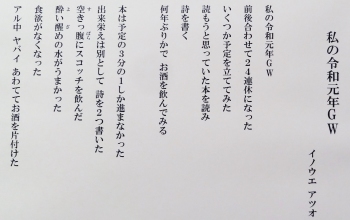 私の令和元年GW
イノウエ アツオ
私の令和元年GW
前後合わせて24連休になった
いくつか予定を立ててみた
読もうと思っていた本を読み
詩を書く
何年ぶりかで お酒を飲んでみる
本は予定の3分の1しか進まなかった
出来栄えは別として 詩を2つ書いた
空きっ腹にスコッチを飲んだ
酔い醒めの水がうまかった
食欲がなくなった
アル中 ヤバイ あわててお酒を片付けた